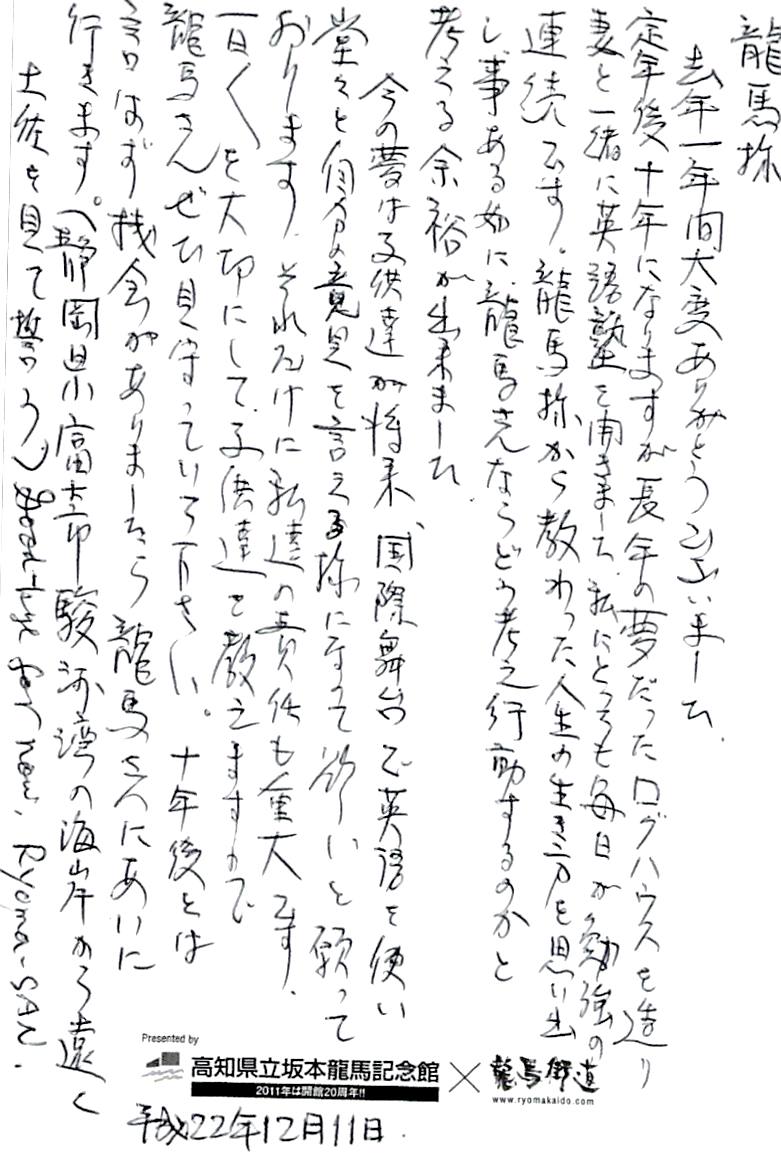 龍馬様
去年一年間大変ありがとうございました。
定年後十年になりますが長年の夢だったログハウスを造り
妻と一緒に英語塾を開きました。私にとっても毎日が勉強の
連続です。龍馬様から教わった人生の生き方を思い出
し、事ある毎に、龍馬さんならどう考え行動するのかと
考える余裕が出来ました。
今の夢は子供達が将来、国際舞台で英語を使い
堂々と自分の意見を言える様になって欲しいと願って
おります。それだけに私達の責任も重大です。
一日一日を大切にして、子供達を教えますので
龍馬さんぜひ見守っていて下さい。十年後とは
言はず機会がありましたら龍馬さんにあいに
行きます。(静岡県富士市駿河湾の海岸から遠く
土佐を見て誓う) Good-bye for now, Ryoma-SAN.
Presented by
高知県立坂本龍馬記念館
2011年は開館20周年!!
×
龍馬街道
www.ryomakaido.com
平成22年12月11日.